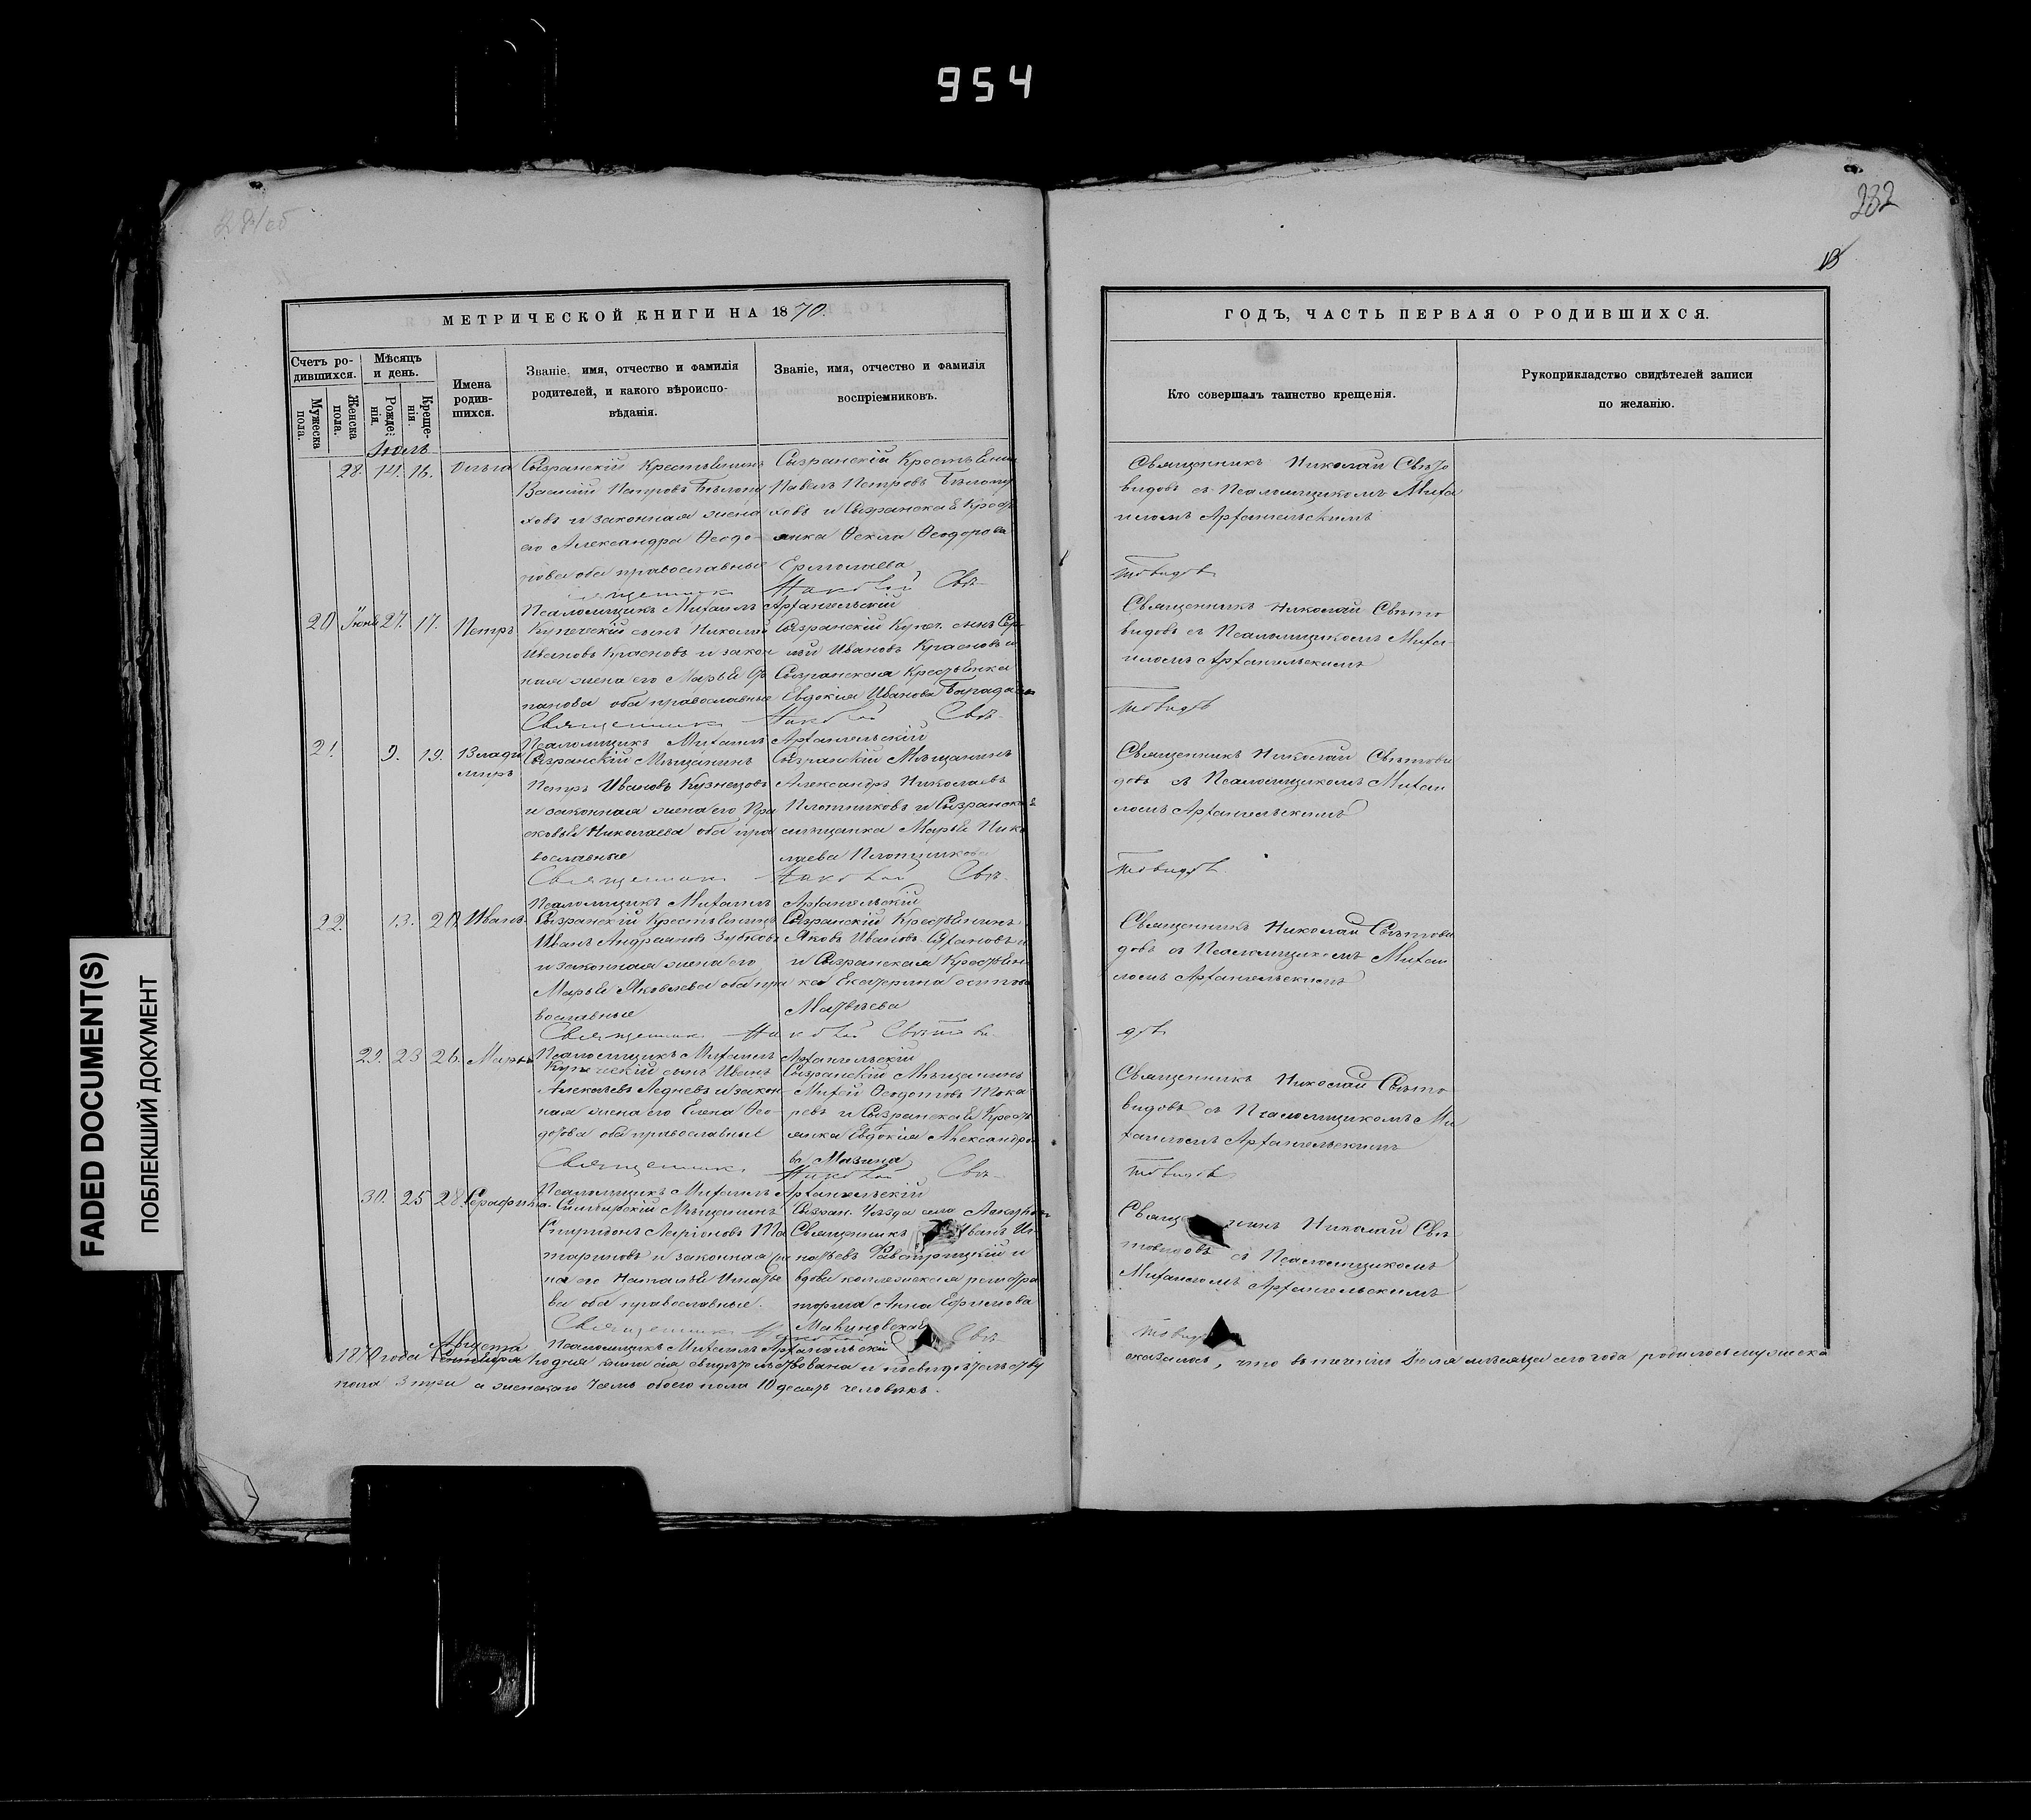 954
232
13
МЕТРИЧЕСКОЙ КНИГИ НА 1870.
Счетъ родившихся.
Мужеска пола.
Женска пола.
Мѣсяцъ и день.
Рожденія.
Крещенія.
Имена родившихся.
Званіе, имя, отчество и фамилія родителей, и какого вѣроисповѣданія.
Званіе, имя, отчество и фамилія воспріемниковъ.
ГОДЪ, ЧАСТЬ ПЕРВАЯ О РОДИВШИХСЯ.
Кто совершалъ таинство крещенія.
Рукоприкладство свидѣтелей записи
по желанію.
Іюль
28. 14. 16. Ольга
Сызранскій Крестьянинъ
Василій Петровъ
ховъ и законная жена
его Александра Ѳеодо-
рова оба православные
Сызранскій Крестьянин
Павелъ Петровъ
ховъ и Сызранская Крест
янка Ѳекла Ѳеодорова
Ермолаева
Священникъ Николай Свѣто
видовъ съ Псаломщикомъ Миха
иломъ Архангельскимъ
Священникъ Николай Свѣ-
товидовъ
Псаломщикъ Михаилъ Архангельскій
20 Іюня 27. 17. Петръ
Купеческій сынъ Николай
Ивановъ Красновъ и закон
ная жена его Марья Сте
панова оба православные
Сызранскій Купеч. сынъ Сер
гѣй Ивановъ Красновъ и
Сызранская Крестьянка
Евдокія Иванова
Священникъ Николай Свѣто
видовъ съ Псаломщикомъ Миха-
иломъ Архангельскимъ
Священникъ Николай Свѣ-
товидовъ
Псаломщикъ Михаилъ Архангельскій
21. 9. 19. Влади
миръ
Сызранскій Мѣщанинъ
Петръ Ивановъ Кузнецовъ
и законная жена его Пра
сковья Николаева оба пра
вославные
Сызранскій Мѣщанинъ
Александръ Николаевъ
Плотниковъ и Сызранская
мѣщанка Марья Нико
лаева Плотникова
Священникъ Николай Свѣтови
довъ съ Псаломщикомъ Михаи
ломъ Архангельскимъ
Священникъ Николай Свѣ-
товидовъ
Псаломщикъ Михаилъ Архангельскій
22. 13. 20. Иванъ
Сызранскій Крестьянинъ
Иванъ Андреановъ Зубковъ
и законная жена его
Марья Яковлева оба пра
вославные
Сызранскій Крестьянинъ
Яковъ Ивановъ
и Сызранская Крестьян
ка Екатерина Осипова
Матвѣева
Священникъ Николай Свѣтови
довъ съ Псаломщикомъ Михаи
ломъ Архангельскимъ
Священникъ Николай Свѣтови-
довъ
Псаломщикъ Михаилъ Архангельскій
29. 23 26. Марья
Купеческій сынъ Иванъ
Алексѣевъ Ледневъ и закон-
ная жена его Елена Ѳео-
дотова оба православные
Сызранскій Мѣщанинъ
Ѳеодотовъ Тока
ревъ и Сызранская Крест
янка Евдокія Александро
ва Мазина
Священникъ Николай Свѣто
видовъ съ Псаломщикомъ Ми
хаиломъ Архангельскимъ
Священникъ Николай Свѣ-
товидовъ
Псаломщикъ Михаилъ Архангельскій
30. 25 28. Серафима.
Симбирскій Мѣщанинъ
Спиридонъ Ларіоновъ Та
тариновъ и законная же
на его Наталья Игнатье
ва оба православные.
Сызран. Уѣзда села
Священникъ Иванъ Иг
натьевъ и
вдова коллежская регистра
торша Анна Ефимова
Священникъ Николай Свѣ
товидовъ съ Псаломщикомъ
Михаиломъ Архангельскимъ
Священникъ Николай Свѣ-
товидовъ
Псаломщикъ Михаилъ Архангельскій
Августа
1870 года Сентября 1 го дня книга сія свидѣтельствована и по свидѣтельству оказалось, что въ теченіи Іюля мѣсяца сего года родилось мужеска
пола 3 три а женскаго 7 семь обоего пола 10 десять человѣкъ.
FADED DOCUMENT(S)
ПОБЛЕКШИЙ ДОКУМЕНТ